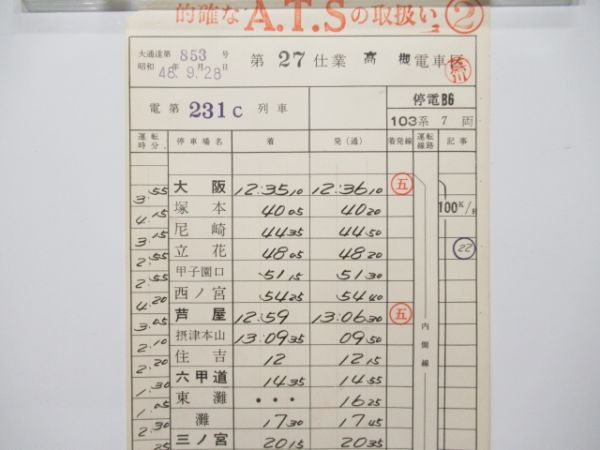 的確な A.T.S の取扱い ②
大通達第 853 号
昭和 48年 9月28日
第 27 仕業 高槻電車区
電 第 231c 列車
停電B6
103系 7 両
運転時分 停車場名 着 発(通) 着発線 運転線路 記事
大阪 12:35 10 12:36 10 五
3.55
100K/
塚本 40 05 40 20
4.15
尼崎 44 35 44 50
3.15
22
立花 48 05 48 20
2.55
甲子園口 51 15 51 30
2.55
西ノ宮 54 25 54 40
4.20
芦屋 12:59 13:06 30 五
3.05
内側線
摂津本山 13:09 35 09 50
2.10
住吉 12 12 15
2.20
六甲道 14 35 14 55
1.30
東灘 ・・・ 16 25
1.05
灘 17 30 17 45
2.30
三ノ宮 20 15 20 35